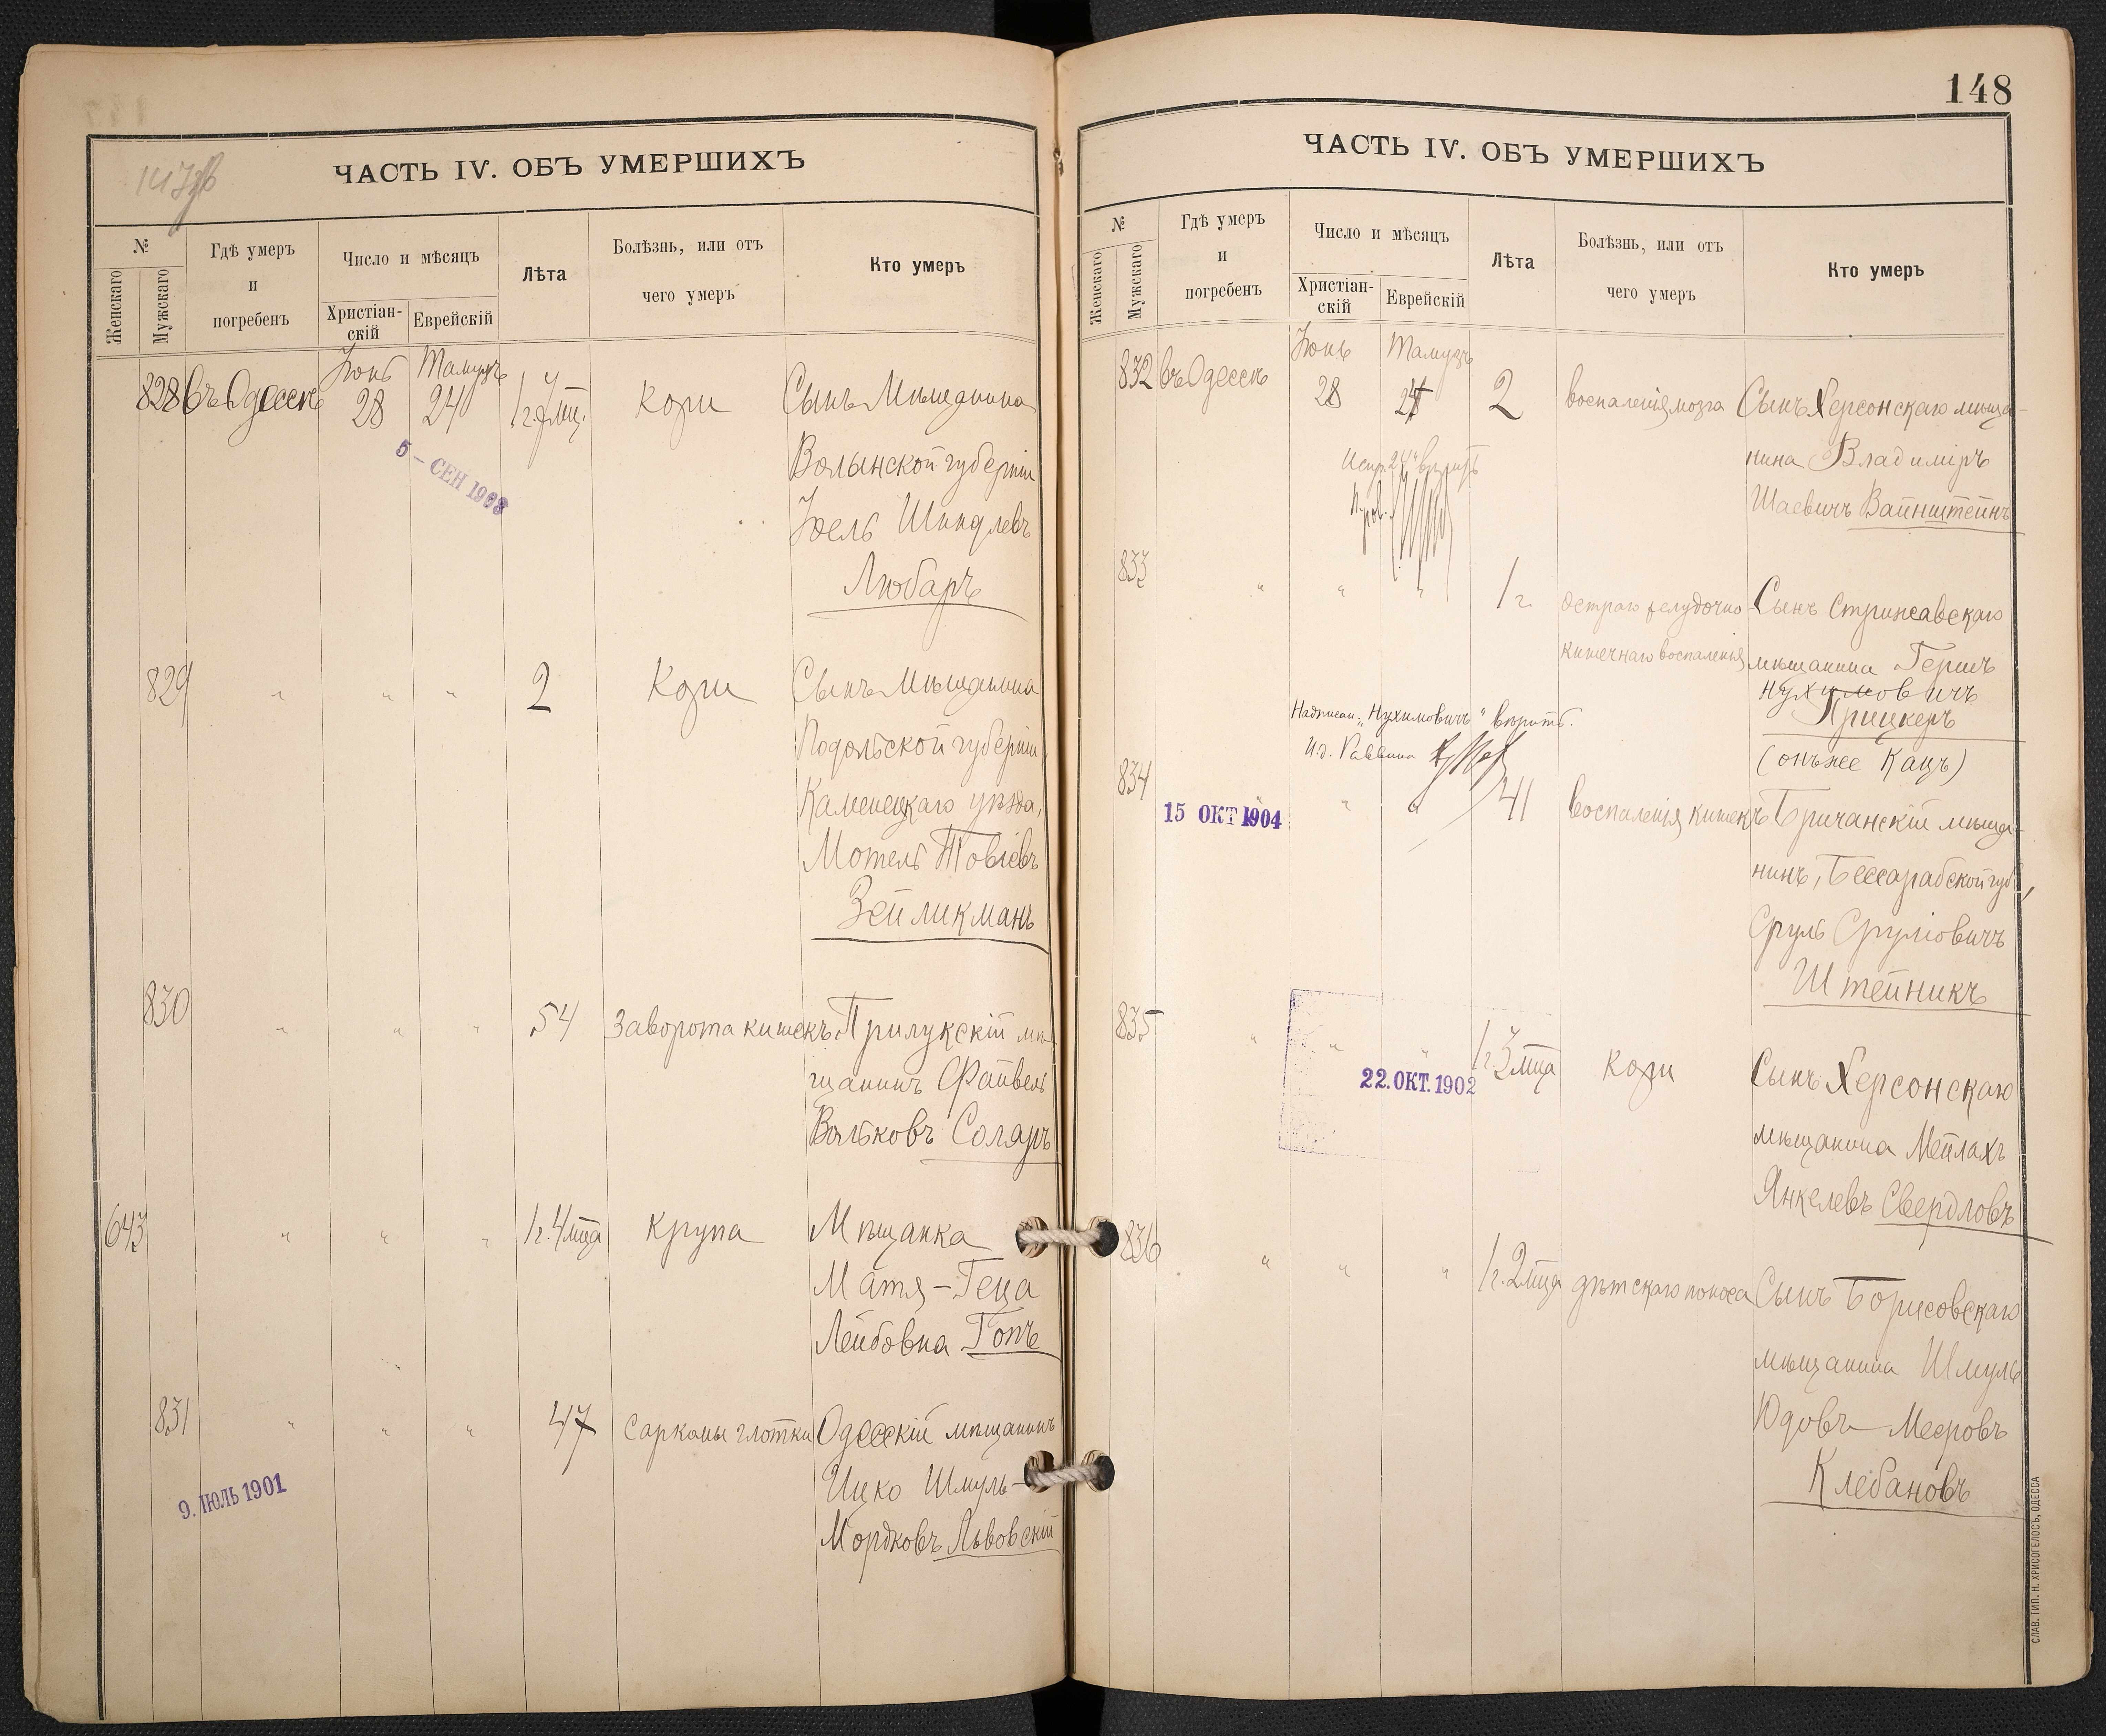 ЧАСТЬ IV. ОБЪ УМЕРШИХЪ
№
Женскаго
Мужскаго
Гдѣ умеръ
и
погребенъ
Число и мѣсяцъ
Христіан-
скій
Еврейскій
Лѣта
Болѣзнь, или отъ
чего умеръ
Кто умеръ
Іюнь Тамузъ
828 въ Одессѣ 28 24 Кори Сынъ Мѣщанина
Волынской губерніи
5 – СЕН 1903
Іоель Шндлевъ
Любаръ
829 " " " 2 Кори Сынъ Мѣщанина
Подольской губерніи,
Каменецкаго уѣзда,
Мотель Товіевъ
Зейликманъ
830 " " " 54 Заворота кишекъ Прилукскій мѣ-
щанинъ Файвель
Вольковъ Соляръ
643 " " " 1 г. 4 мца Крупа Мѣщанка
Матя-Геца
Лейбовна Гопъ
831 " " " 47 Саркомы глотки Одесскій мѣщанинъ
Ицко Шмуль-
9. ІЮЛЬ 1901
Мордковъ Львовскій
148
ЧАСТЬ IV. ОБЪ УМЕРШИХЪ
№
Женскаго
Мужскаго
Гдѣ умеръ
и
погребенъ
Число и мѣсяцъ
Христіан-
скій
Еврейскій
Лѣта
Болѣзнь, или отъ
чего умеръ
Кто умеръ
Іюнь Тамузъ
832 въ Одессѣ 28 24 2 воспаленія мозга Сынъ Херсонскаго мѣща-
нина Владиміръ
Испр. "24" вѣрить
Шаевичъ Вайнштейнъ
833 " " " 1 г. острого желудочно- Сынъ Стрижавскаго
кишечнаго воспаленія мѣщанина Гершъ
Нухимовичъ
Надписан: "Нухимовичъ" вѣрить.
Крицкеръ
И.д. Раввина
(онъ же Кацъ)
834 " " " 41 воспаленія кишекъ Бричанскій мѣща-
15 ОКТ 1904
нинъ, Бессарабской губ.,
Сруль Сруліовичъ
Штейникъ
835 " " " 1 г. 3 мца Кори Сынъ Херсонскаго
22. ОКТ. 1902
мѣщанина Мейлахъ
Янкелевъ Свердловъ
836 " " " 1 г. 2 мца дѣтскаго поноса Сынъ Борисовскаго
мѣщанина Шмуль
Юдовъ-Мееровъ
Клебановъ
СЛАВ. ТИП. Н. ХРИСОГЕЛОСЪ, ОДЕССА